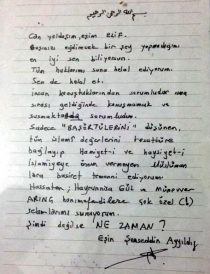 بسم الله الرحمن الرحيم
Can yoldaşım, eşim ELİF.
Başınızı eğdirecek bir şey yapmadığımı
en iyi sen biliyorsun.
Tüm haklarımı sana helal ediyorum.
Sen de helal et.
insan konuştuklarından sorumludur ama
sırası geldiğinde konuşmamak ve
susmaktan da sorumludur.
Sadece "BAŞÖRTÜLERİNİ" düşünen,
tüm islami değerlerini teesttüre
bağlayıp Hamiyet-i ve haysiyet-i
İslamiyeye önem vermeyen
lara basiret temenni ediyorum
Hassaten, Hayrunnisa GÜL ve Münevver
ARINÇ hanımefendilere çok özel (!)
selamlarımı sunuyorum.
Şimdi değilse NE ZAMAN?
Eşin Şemseddin Aygıldı